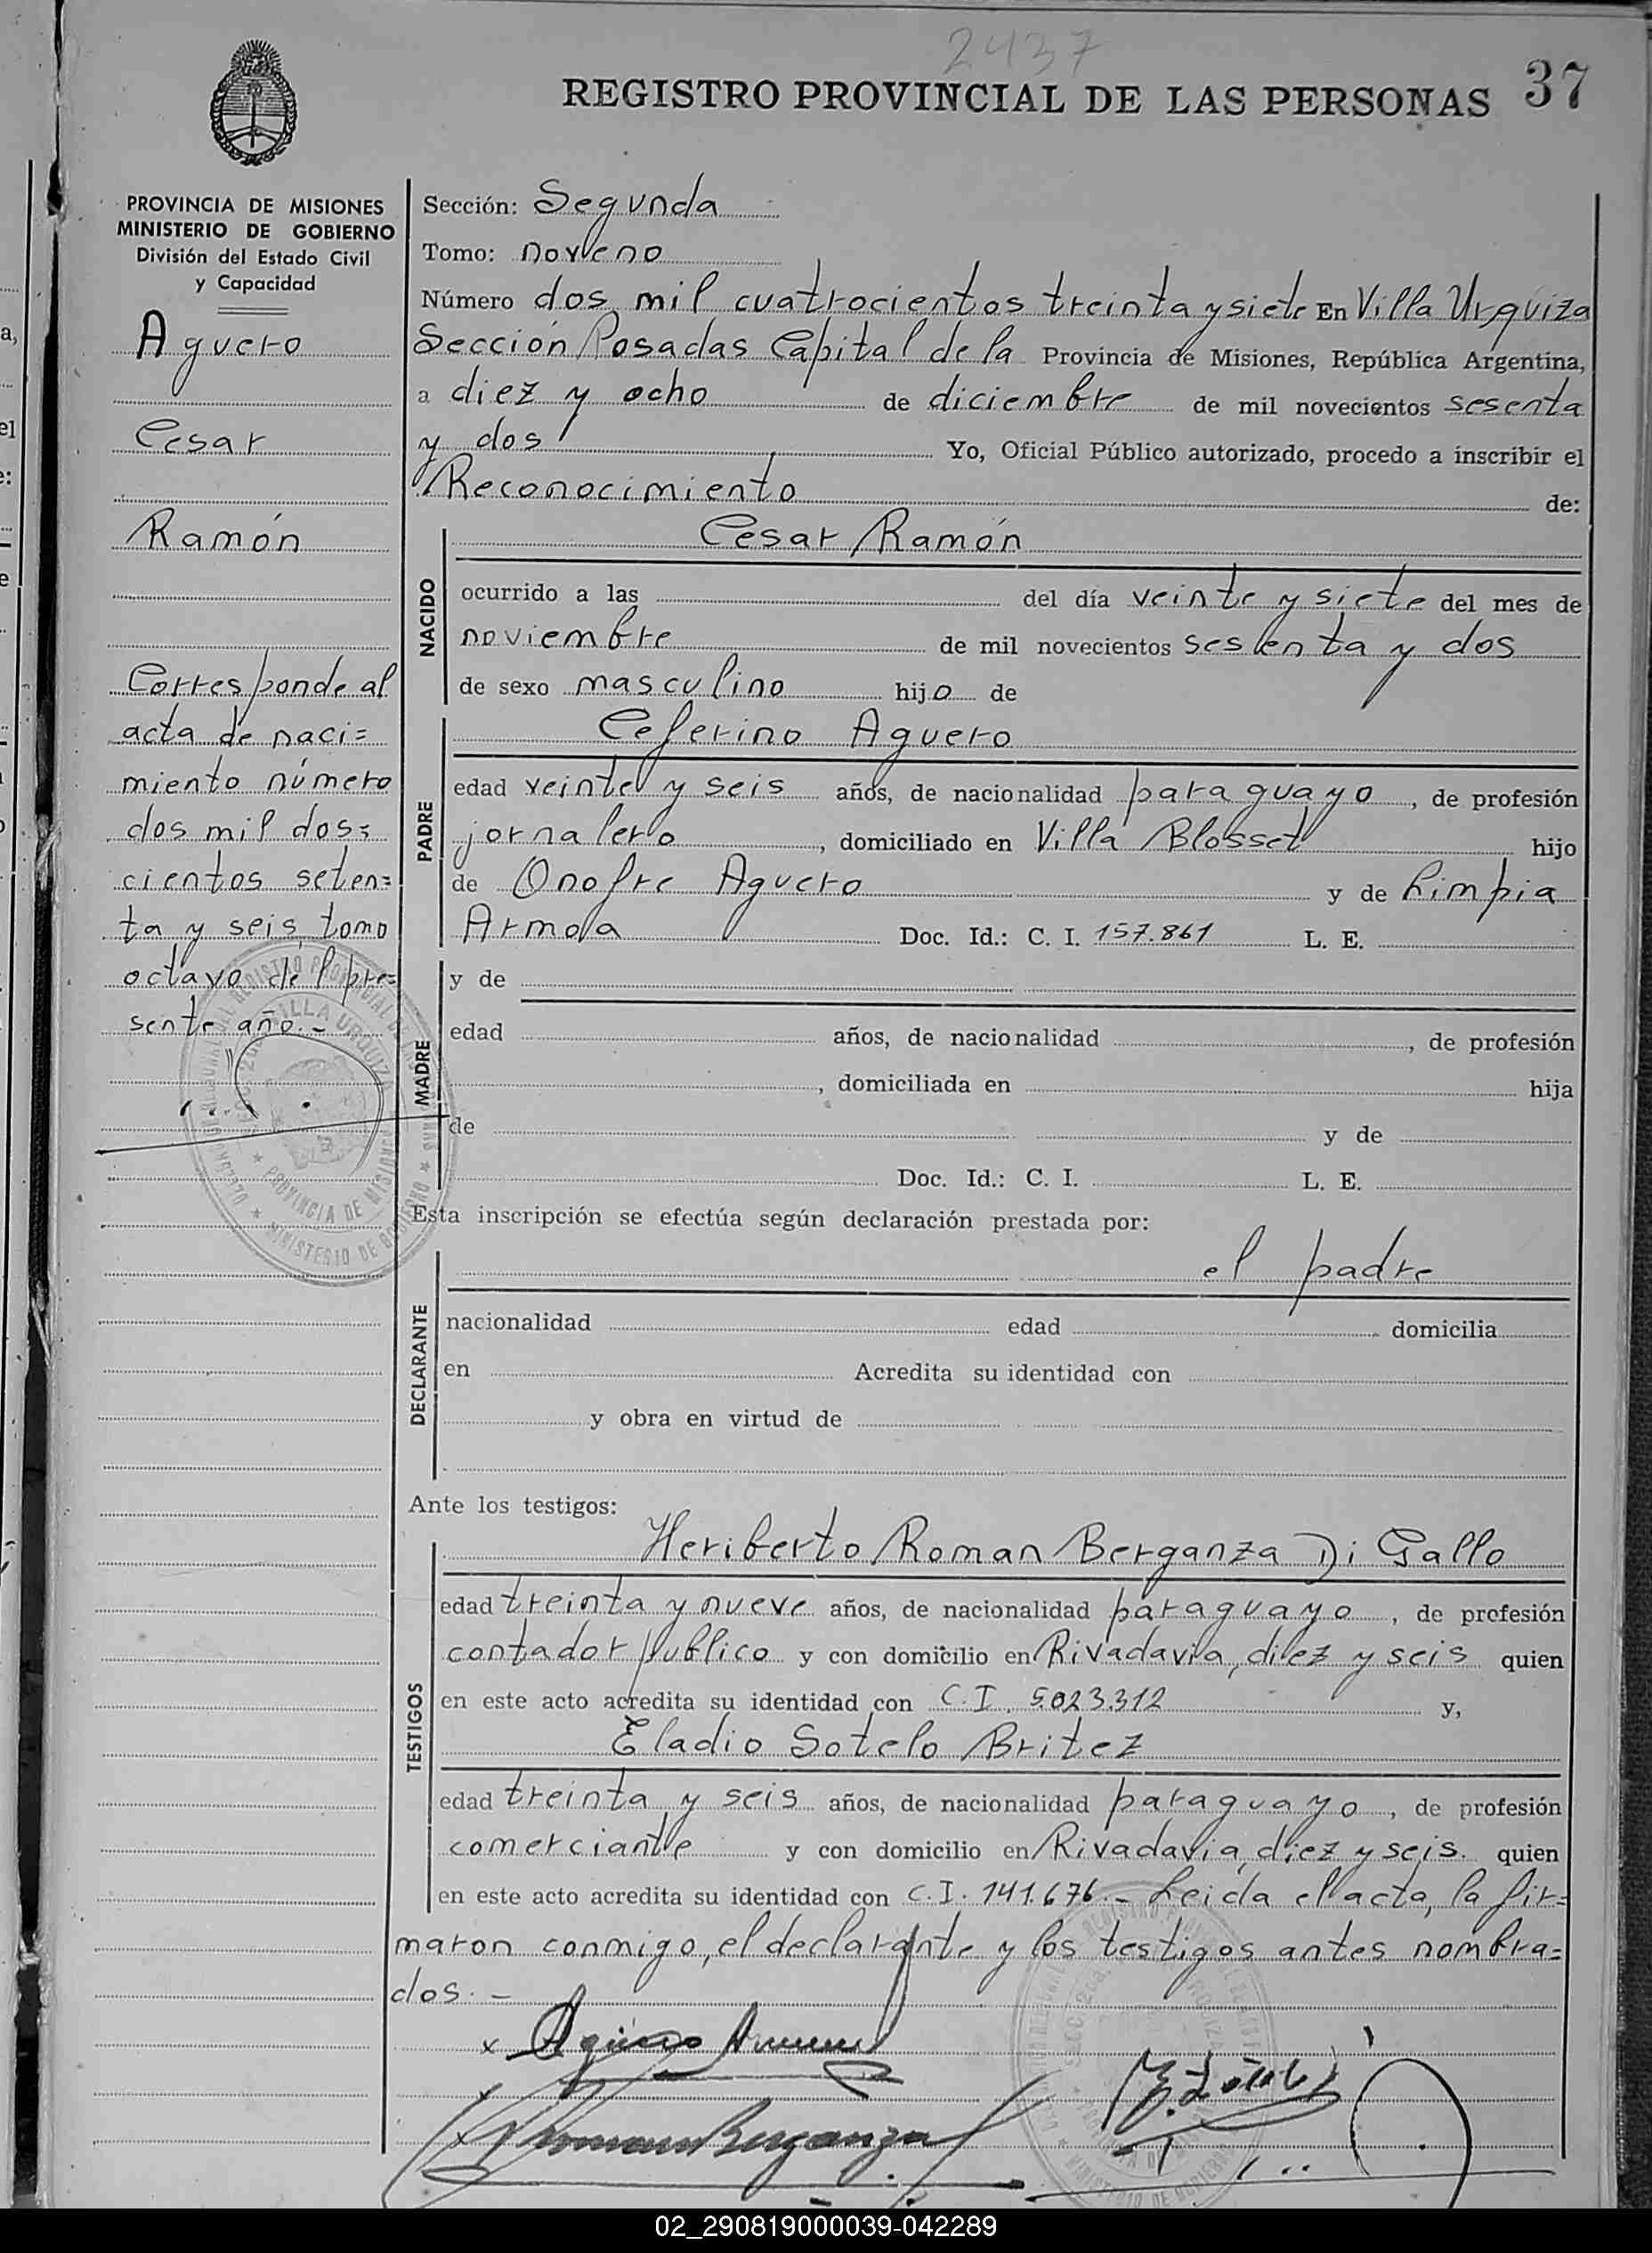 2437
REGISTRO PROVINCIAL DE LAS PERSONAS 37
PROVINCIA DE MISIONES
MINISTERIO DE GOBIERNO
División del Estado Civil
y Capacidad
Aguero
Cesar
Ramón
Corresponde al
acta de naci=
miento número
dos mil dos=
cientos seten=
ta y seis tomo
octavo del pre=
sente año.-
Sección: Segunda
Tomo: noveno
Número dos mil cuatrocientos treinta y siete En Villa Urquiza
Sección Posadas Capital de la Provincia de Misiones, República Argentina,
a diez y ocho de diciembre de mil novecientos sesenta
y dos Yo, Oficial Público autorizado, procedo a inscribir el
Reconocimiento de:
NACIDO
Cesar Ramón
ocurrido a las del día veinte y siete del mes de
noviembre de mil novecientos sesenta y dos
de sexo masculino hijo de
PADRE
Ceferino Aguero
edad veinte y seis años, de nacionalidad paraguayo, de profesión
jornalero, domiciliado en Villa Blosset hijo
de Onofre Aguero y de Limpia
Armoa Doc. Id.: C. I. 157.861 L. E.
MADRE
y de
edad años, de nacionalidad , de profesión
, domiciliada en hija
de y de
Doc. Id.: C. I. L. E.
Esta inscripción se efectúa según declaración prestada por:
DECLARANTE
el padre
nacionalidad edad domicilia
en Acredita su identidad con
y obra en virtud de
Ante los testigos:
TESTIGOS
Heriberto Roman Berganza Di Gallo
edad treinta y nueve años, de nacionalidad paraguayo, de profesión
contador publico y con domicilio en Rivadavia, diez y seis quien
en este acto acredita su identidad con C.I. 5.023.312 y,
Eladio Sotelo Britez
edad treinta y seis años, de nacionalidad paraguayo, de profesión
comerciante y con domicilio en Rivadavia, diez y seis. quien
en este acto acredita su identidad con C.I. 141.676.- Leida el acta, la fir=
maron conmigo, el declarante y los testigos antes nombra=
dos.-
x Agüero
Berganza
02_290819000039-042289